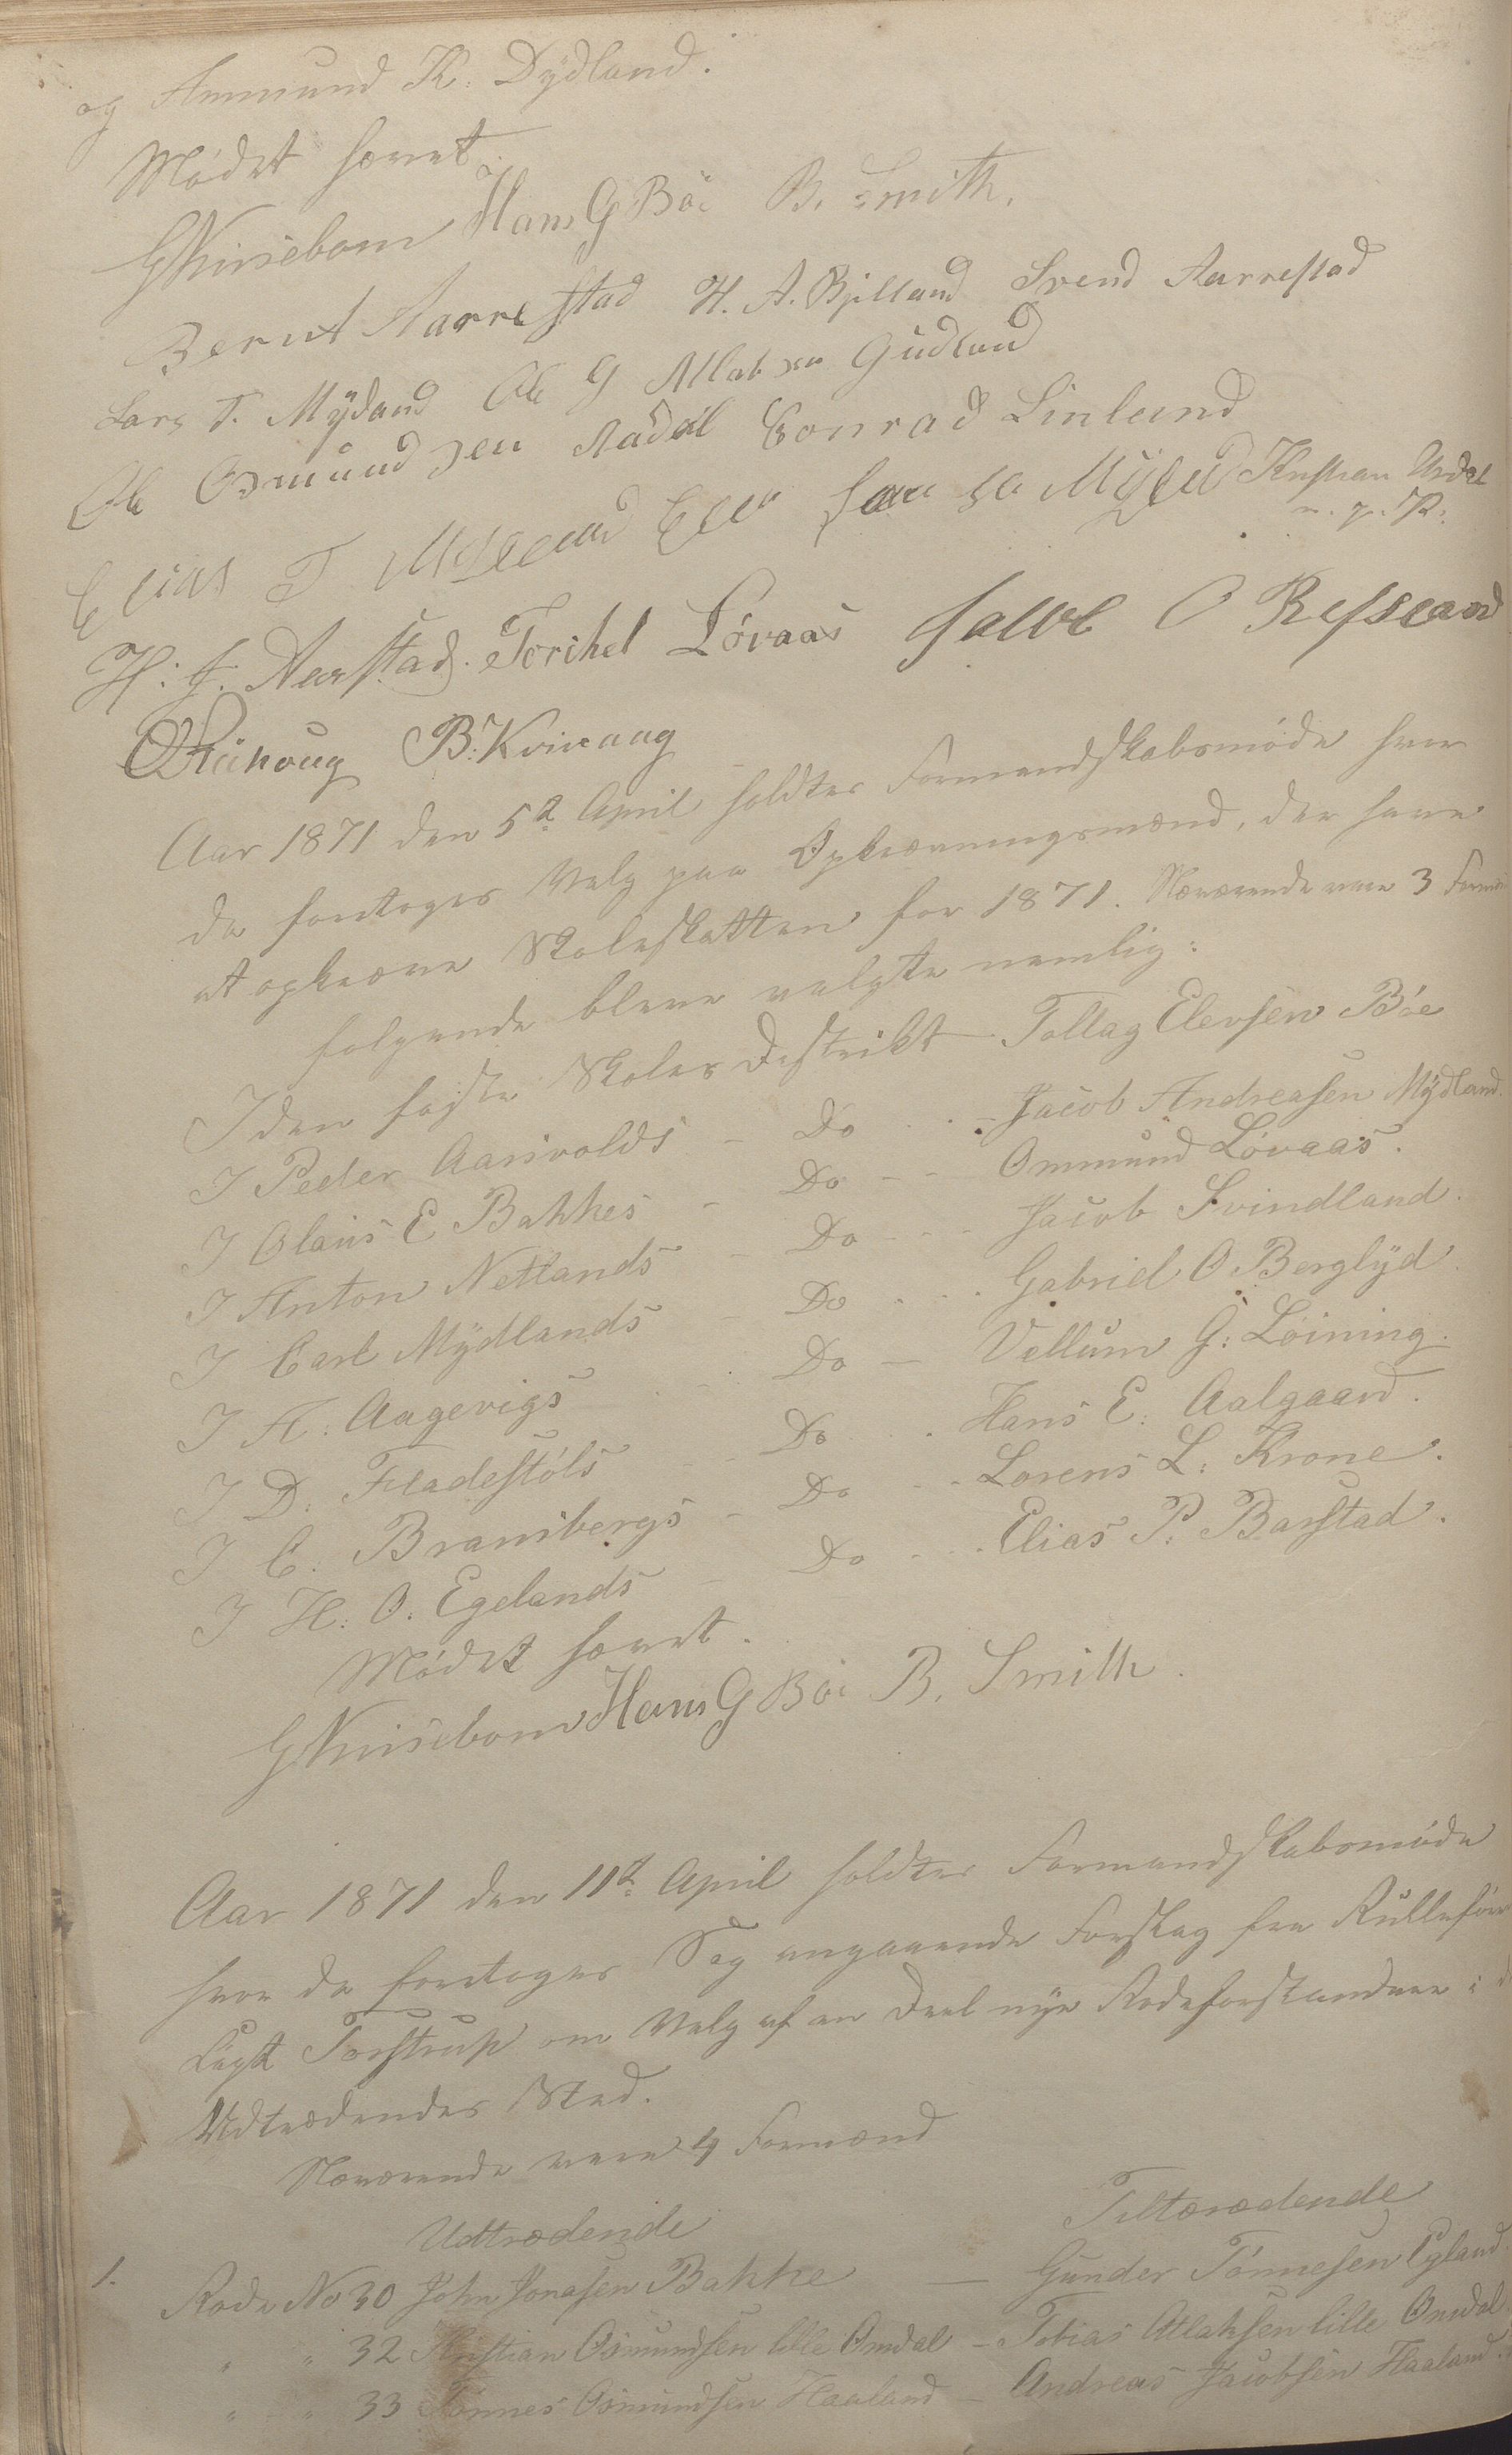 og Ammund K. Dydland.
Mødet hævet.
Hans G Bøe B. Smith.
Bernt Aarrestad H. A. Bjelland Svend Aarrestad
Lars T. Mydland Ole G Gudland
Ole Osmundsen Aadal Conrad Linland
Elias T
H: J. Aarstad. Torkel Løvaas O Refsland
Aar 1871 den 5te April holdtes Formandskabsmøde hvor
da foretoges Valg paa Opkrævningsmænd, der have
at opkræve Skoleskatten for 1871. Nærværende vare 3 Formænd
følgende bleve valgte nemlig:
I den faste Skoles Distrikt Tollag Elevsen Bøe
I Peder Aarivolds - Do - Jacob Andreasen Mydland.
I Olaus E Bakkes - Do - Ommund Løvaas.
I Anton Netlands - Do - Jacob Svindland.
I Carl Mydlands - Do - Gabriel O Berglyd.
I A: Aagevigs - Do - Vellum G: Løining.
I D: Fladestøls - Do - Hans E. Aalgaard.
I C. Bransbergs - Do - Lorens L: Krone.
I H: O. Egelands - Do - Elias P: Barstad.
Mødet hævet.
Hans G Bøe B. Smith.
Aar 1871 den 11te April holdtes Formandskabsmøde
hvor da foretoges Sag angaaende Forslag fra Rullefører
Capt Torstrup om Valg af en Deel nye Rodeforstandere i
Udtrædendes Sted.
Nærværende vare 4 Formænd
Udtrædende Tiltrædende
1. Rode No 30 John Jonasen Bakke - Gunder Tønnesen Egland.
" " 32 Kristian Osmundsen lille Omdal - Tobias Atlaksen lille Omdal
" " 33 Tønnes Osmundsen Haaland - Andreas Jacobsen Haaland.